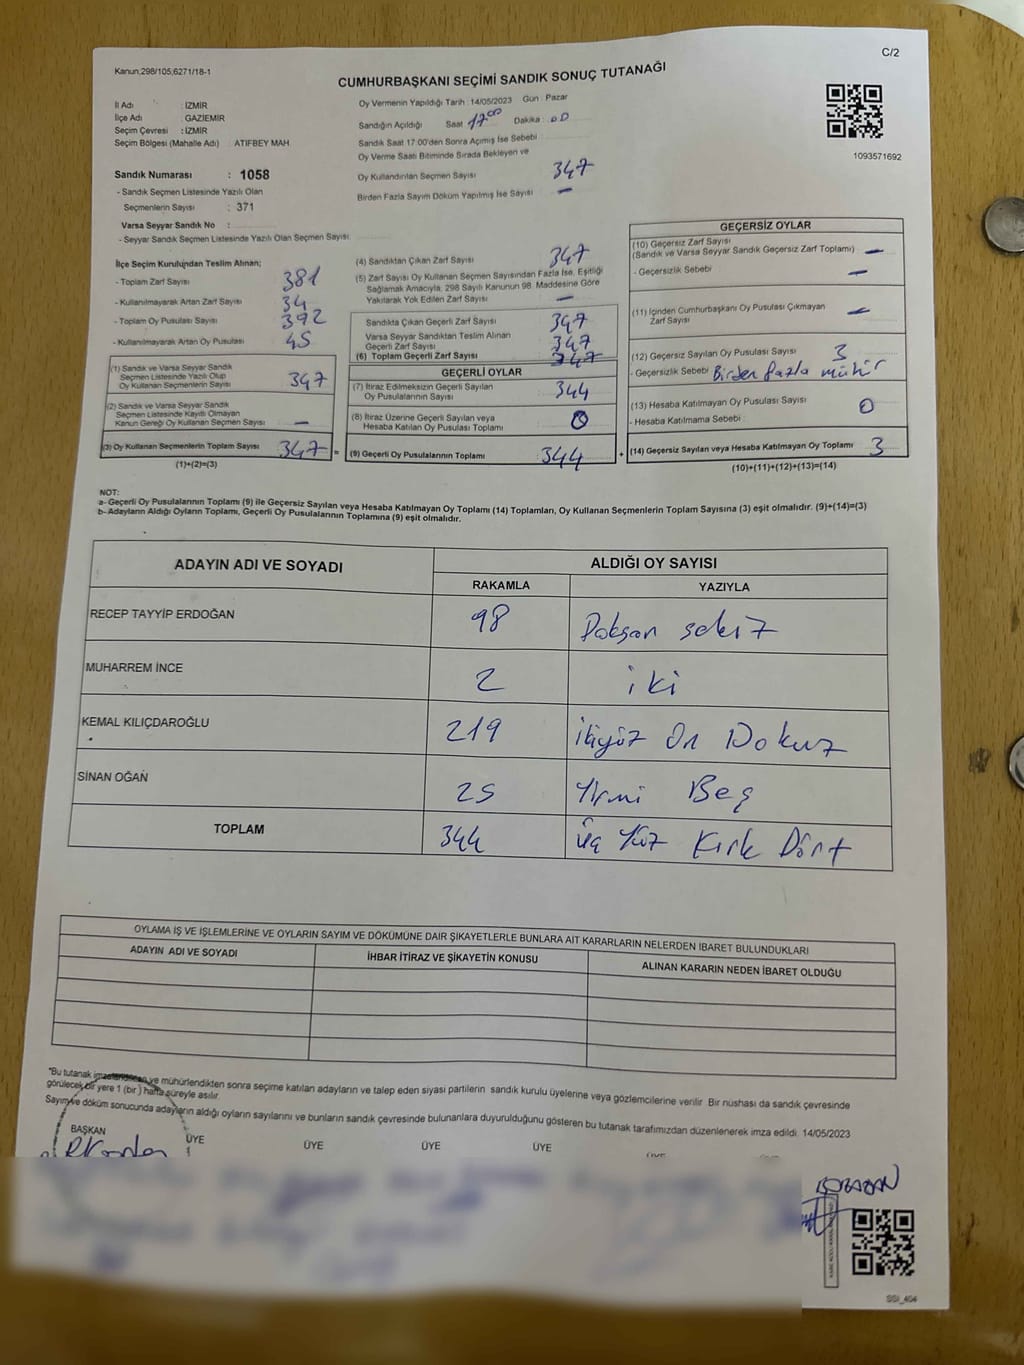 Kanun;298/105;6271/18-1
C/2
CUMHURBAŞKANI SEÇİMİ SANDIK SONUÇ TUTANAĞI
İl Adı : İZMİR
İlçe Adı : GAZİEMİR
Seçim Çevresi : İZMİR
Seçim Bölgesi (Mahalle Adı) : ATIFBEY MAH.
Oy Vermenin Yapıldığı Tarih : 14/05/2023 Gün : Pazar
Sandığın Açıldığı Saat 17 00 Dakika 00
Sandık Saat 17:00'den Sonra Açımış İse Sebebi
Oy Verme Saati Bitiminde Sırada Bekleyen ve
Oy Kullandırılan Seçmen Sayısı 347
Birden Fazla Sayım Döküm Yapılmış İse Sayısı –
1093571692
Sandık Numarası : 1058
- Sandık Seçmen Listesinde Yazılı Olan
Seçmenlerin Sayısı : 371
Varsa Seyyar Sandık No :
- Seyyar Sandık Seçmen Listesinde Yazılı Olan Seçmen Sayısı:
İlçe Seçim Kurulundan Teslim Alınan;
- Toplam Zarf Sayısı 381
- Kullanılmayarak Artan Zarf Sayısı 34
- Toplam Oy Pusulası Sayısı 392
- Kullanılmayarak Artan Oy Pusulası 45
(1) Sandık ve Varsa Seyyar Sandık
Seçmen Listesinde Yazılı Olup
Oy Kullanan Seçmenlerin Sayısı 347
(2) Sandık ve Varsa Seyyar Sandık
Seçmen Listesinde Kayıtlı Olmayan
Kanun Gereği Oy Kullanan Seçmen Sayısı –
(3) Oy Kullanan Seçmenlerin Toplam Sayısı 347 =
(1)+(2)=(3)
(4) Sandıktan Çıkan Zarf Sayısı 347
(5) Zarf Sayısı Oy Kullanan Seçmen Sayısından Fazla İse, Eşitliği
Sağlamak Amacıyla, 298 Sayılı Kanunun 98. Maddesine Göre
Yakılarak Yok Edilen Zarf Sayısı –
Sandıkta Çıkan Geçerli Zarf Sayısı 347
Varsa Seyyar Sandıktan Teslim Alınan
Geçerli Zarf Sayısı 347
(6) Toplam Geçerli Zarf Sayısı 347
GEÇERLİ OYLAR
(7) İtiraz Edilmeksizin Geçerli Sayılan
Oy Pusulalarının Sayısı 344
(8) İtiraz Üzerine Geçerli Sayılan veya
Hesaba Katılan Oy Pusulası Toplamı 0
(9) Geçerli Oy Pusulalarının Toplamı 344 +
GEÇERSİZ OYLAR
(10) Geçersiz Zarf Sayısı
(Sandık ve Varsa Seyyar Sandık Geçersiz Zarf Toplamı) –
- Geçersizlik Sebebi : –
(11) İçinden Cumhurbaşkanı Oy Pusulası Çıkmayan
Zarf Sayısı –
(12) Geçersiz Sayılan Oy Pusulası Sayısı 3
- Geçersizlik Sebebi : Birden fazla mühür
(13) Hesaba Katılmayan Oy Pusulası Sayısı 0
- Hesaba Katılmama Sebebi :
(14) Geçersiz Sayılan veya Hesaba Katılmayan Oy Toplamı 3
(10)+(11)+(12)+(13)=(14)
NOT:
a- Geçerli Oy Pusulalarının Toplamı (9) ile Geçersiz Sayılan veya Hesaba Katılmayan Oy Toplamı (14) Toplamları, Oy Kullanan Seçmenlerin Toplam Sayısına (3) eşit olmalıdır. (9)+(14)=(3)
b- Adayların Aldığı Oyların Toplamı, Geçerli Oy Pusulalarının Toplamına (9) eşit olmalıdır.
ADAYIN ADI VE SOYADI ALDIĞI OY SAYISI
RAKAMLA YAZIYLA
RECEP TAYYİP ERDOĞAN 98 Doksan sekiz
MUHARREM İNCE 2 iki
KEMAL KILIÇDAROĞLU 219 ikiyüz On Dokuz
SİNAN OĞAN 25 Yirmi Beş
TOPLAM 344 Üç Yüz Kırk Dört
OYLAMA İŞ VE İŞLEMLERİNE VE OYLARIN SAYIM VE DÖKÜMÜNE DAİR ŞİKAYETLERLE BUNLARA AİT KARARLARIN NELERDEN İBARET BULUNDUKLARI
ADAYIN ADI VE SOYADI İHBAR İTİRAZ VE ŞİKAYETİN KONUSU ALINAN KARARIN NEDEN İBARET OLDUĞU
"Bu tutanak imzalandıktan ve mühürlendikten sonra seçime katılan adayların ve talep eden siyasi partilerin sandık kurulu üyelerine veya gözlemcilerine verilir. Bir nushası da sandık çevresinde
görülecek bir yere 1 (bir) hafta süreyle asılır.
Sayım ve döküm sonucunda adayların aldığı oyların sayılarını ve bunların sandık çevresinde bulunanlara duyurulduğunu gösteren bu tutanak tarafımızdan düzenlenerek imza edildi. 14/05/2023
BAŞKAN ÜYE ÜYE ÜYE ÜYE
SSİ_404